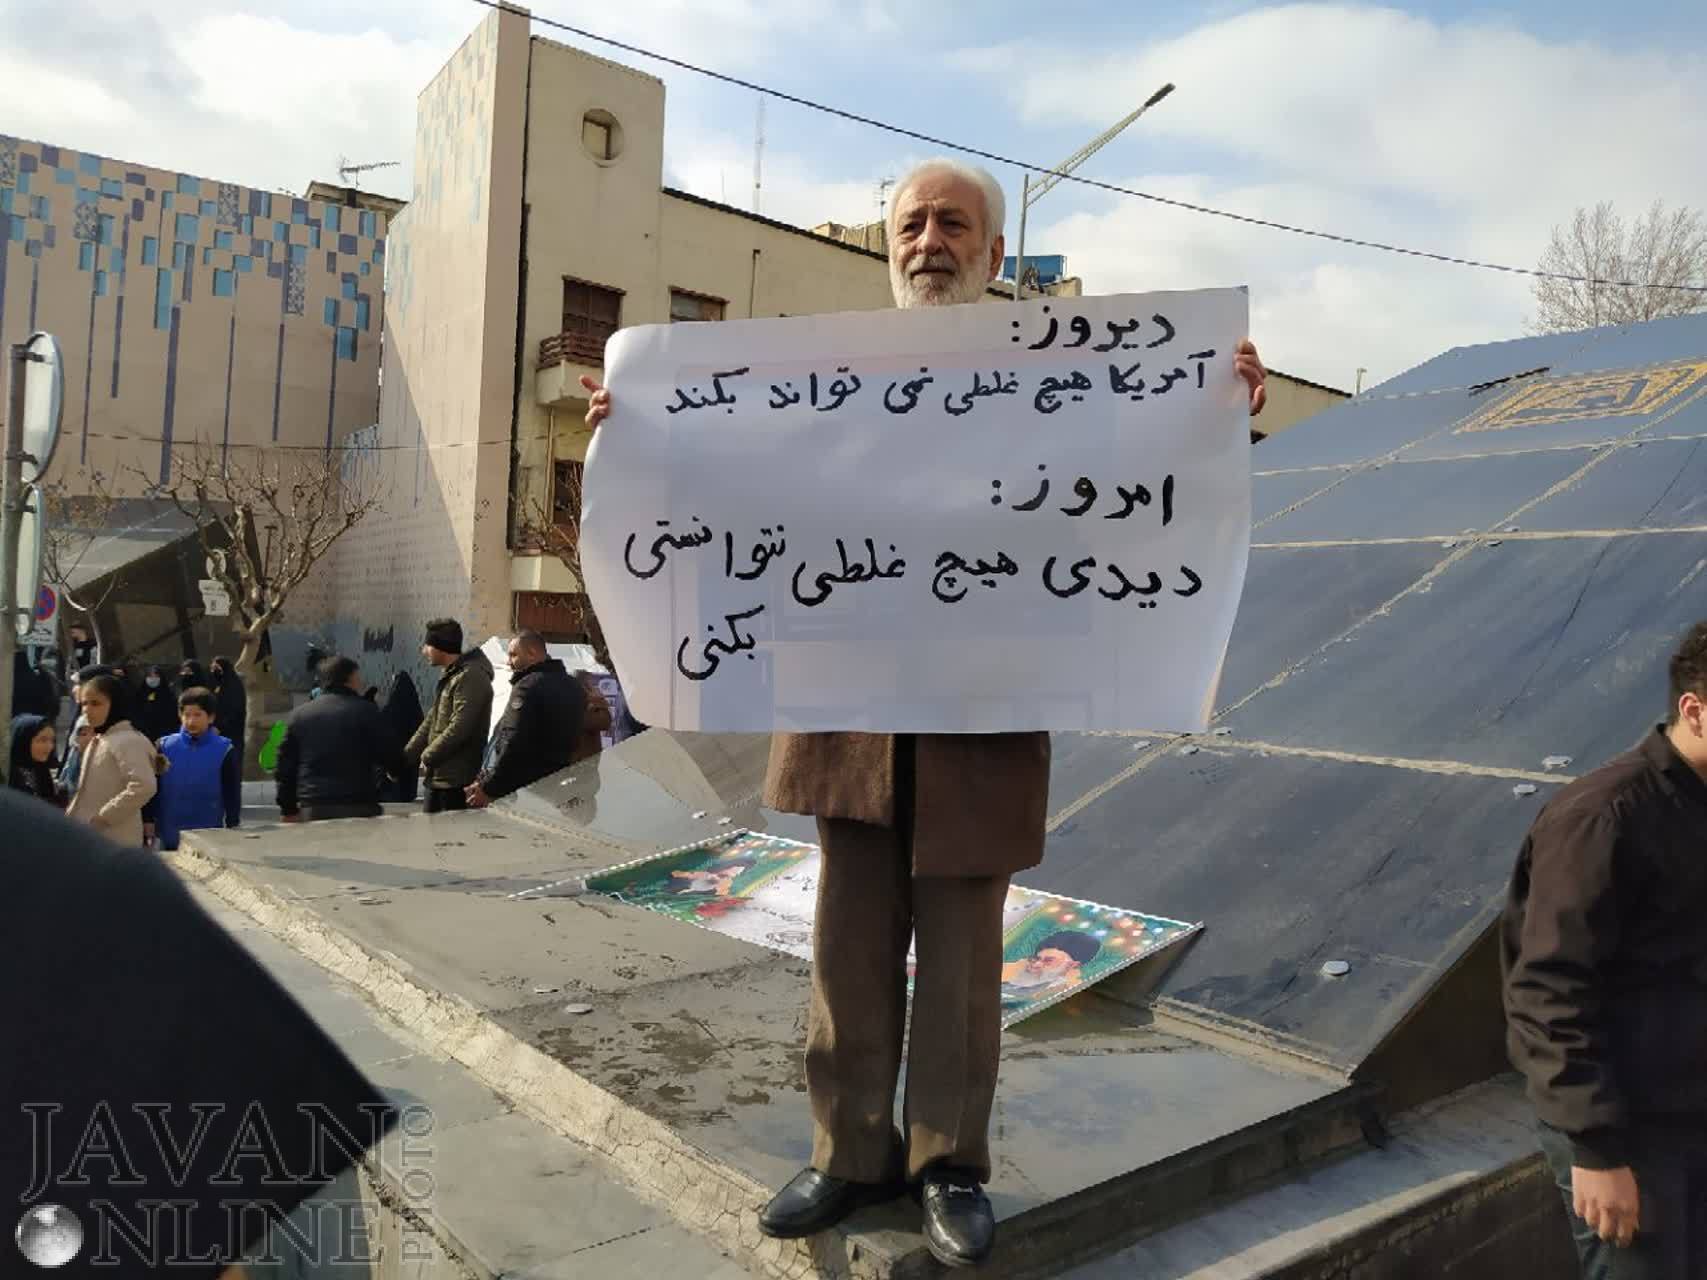 دیروز:
آمریکا هیچ غلطی نمی تواند بکند
امروز:
دیدی هیچ غلطی نتوانستی
بکنی
JAVAN
ONLINE
PHOTO